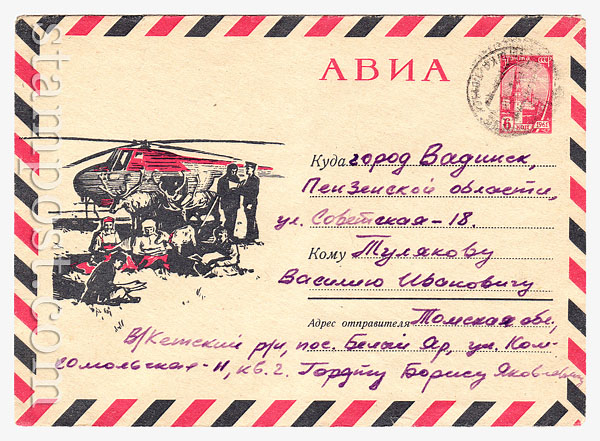 АВИА
ПОЧТА СССР
6 КОП 1961
Куда город Вадинск,
Пензенской области,
ул. Советская-18.
Кому Тулакову
Василию Ивановичу
Адрес отправителя Томская обл,
В/Кетский р/н, пос. Белый Яр, ул. Ком-
сомольская-11, кв. 2. Гордту Борису Яковлевичу
stampost.com